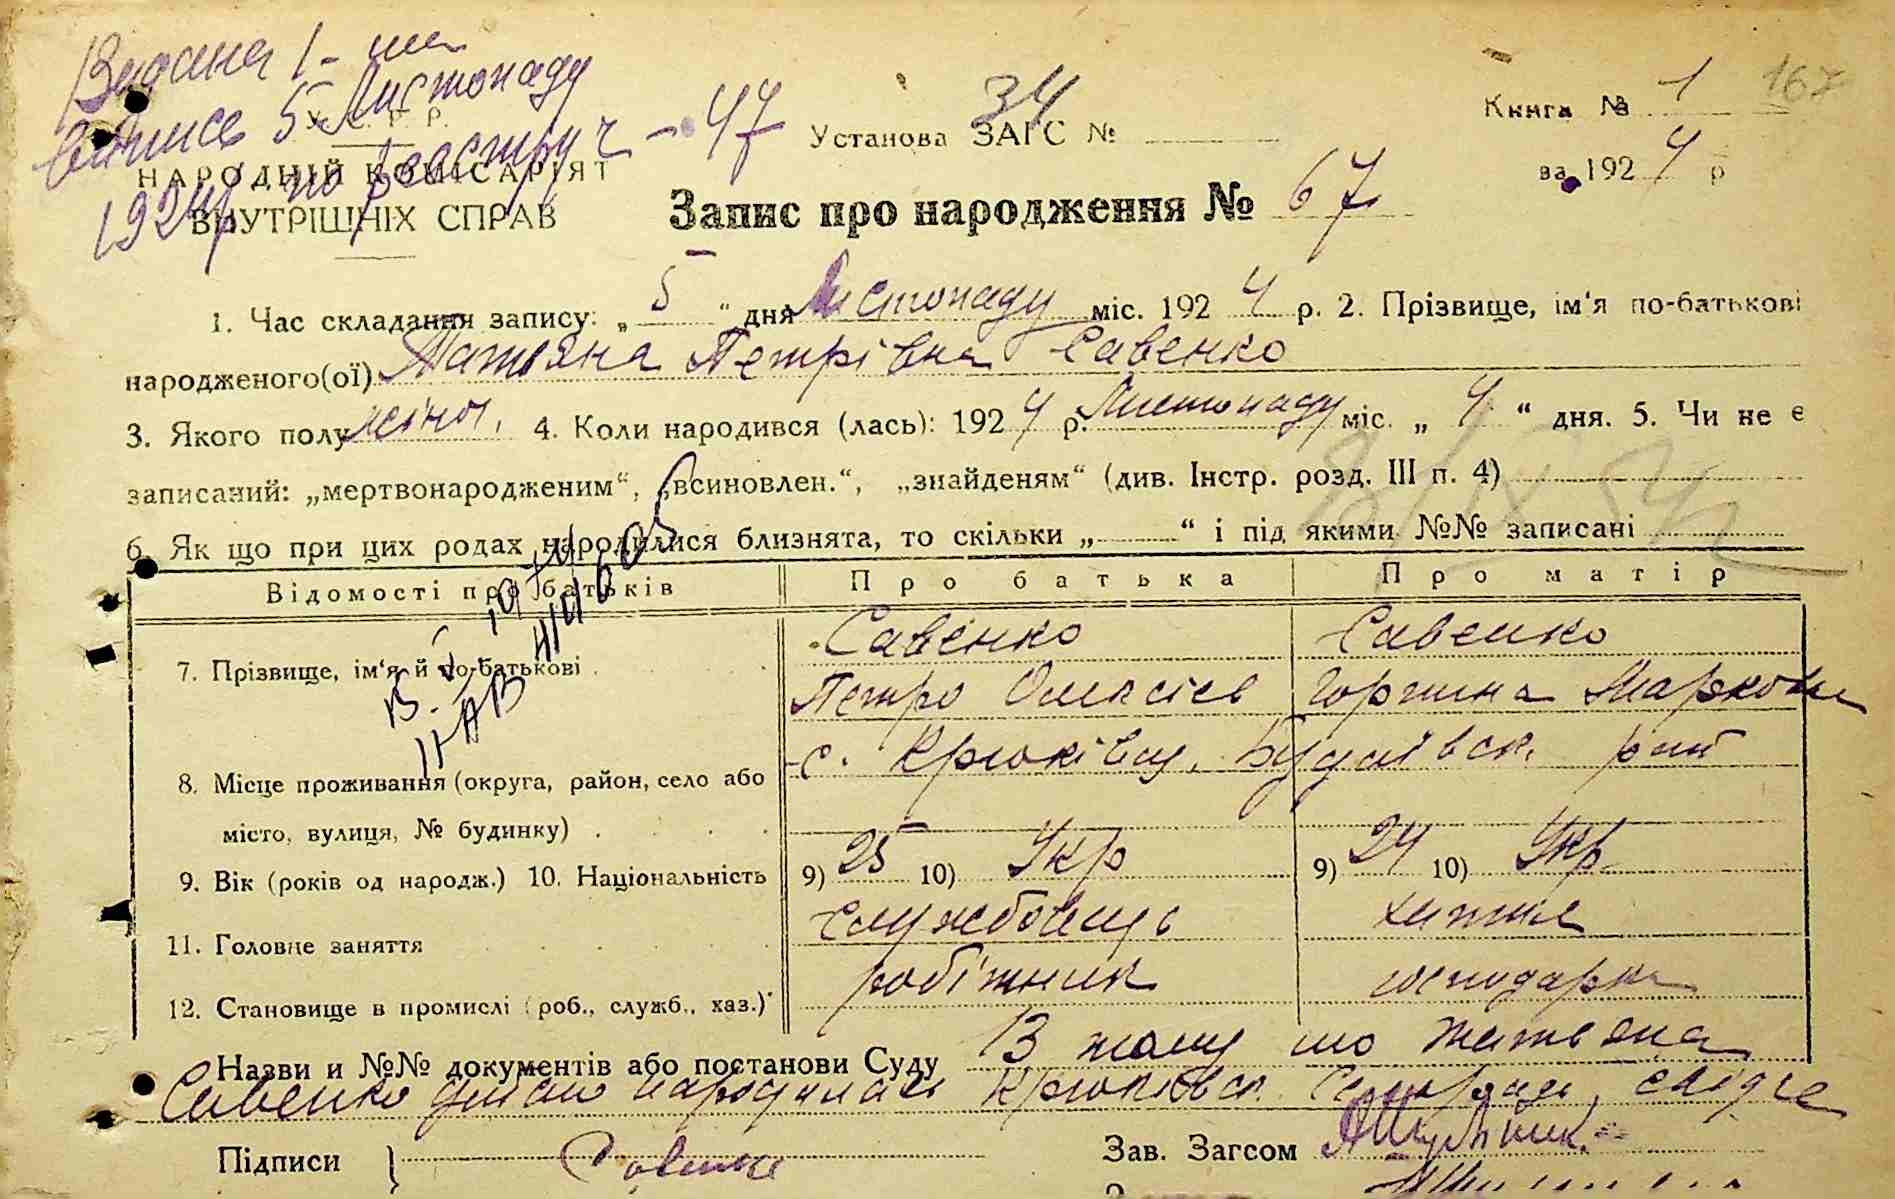 Видана 1-ша
випись 5 Листопаду
1924р. по реєстру ч - 47
У. С. Р. Р.
НАРОДНІЙ КОМІСАРІЯТ
ВНУТРІШНІХ СПРАВ
Установа ЗАГС № 34
Книга № 1
167
за 1924 р
Запис про народження № 67
1. Час складання запису: „5“ дня Листопаду міс. 1924 р. 2. Прізвище, ім'я по-батькові
народженого(ої) Татьяна Петрівна Савенко
3. Якого полу жіноч. 4. Коли народився (лась): 1924 р. Листопаду міс. „4“ дня. 5. Чи не є
записаний: „мертвонародженим“, „всиновлен.“, „знайденям“ (див. Інстр. розд. III п. 4)
6. Як що при цих родах народилися близнята, то скільки „ “ і під якими №№ записані
Відомості про батьків Про батька Про матір
7. Прізвище, ім'я й по-батькові Савенко Савенко
Петро Олексієв Горпина Марковна
8. Місце проживання (округа, район, село або с. Крюківщ. Будаївск. рай
місто, вулиця, № будинку)
9. Вік (років од народж.) 10. Національність 9) 25 10) Укр 9) 24 10) Укр
11. Головне заняття службовець хатня
12. Становище в промислі (роб., служб., хаз.) робітник господарка
Назви и №№ документів або постанови Суду В тому що Татьяна
Савенко дійсно народилась Крюківск. Сільрада, свідче
Підписи } Савенко
Зав. Загсом